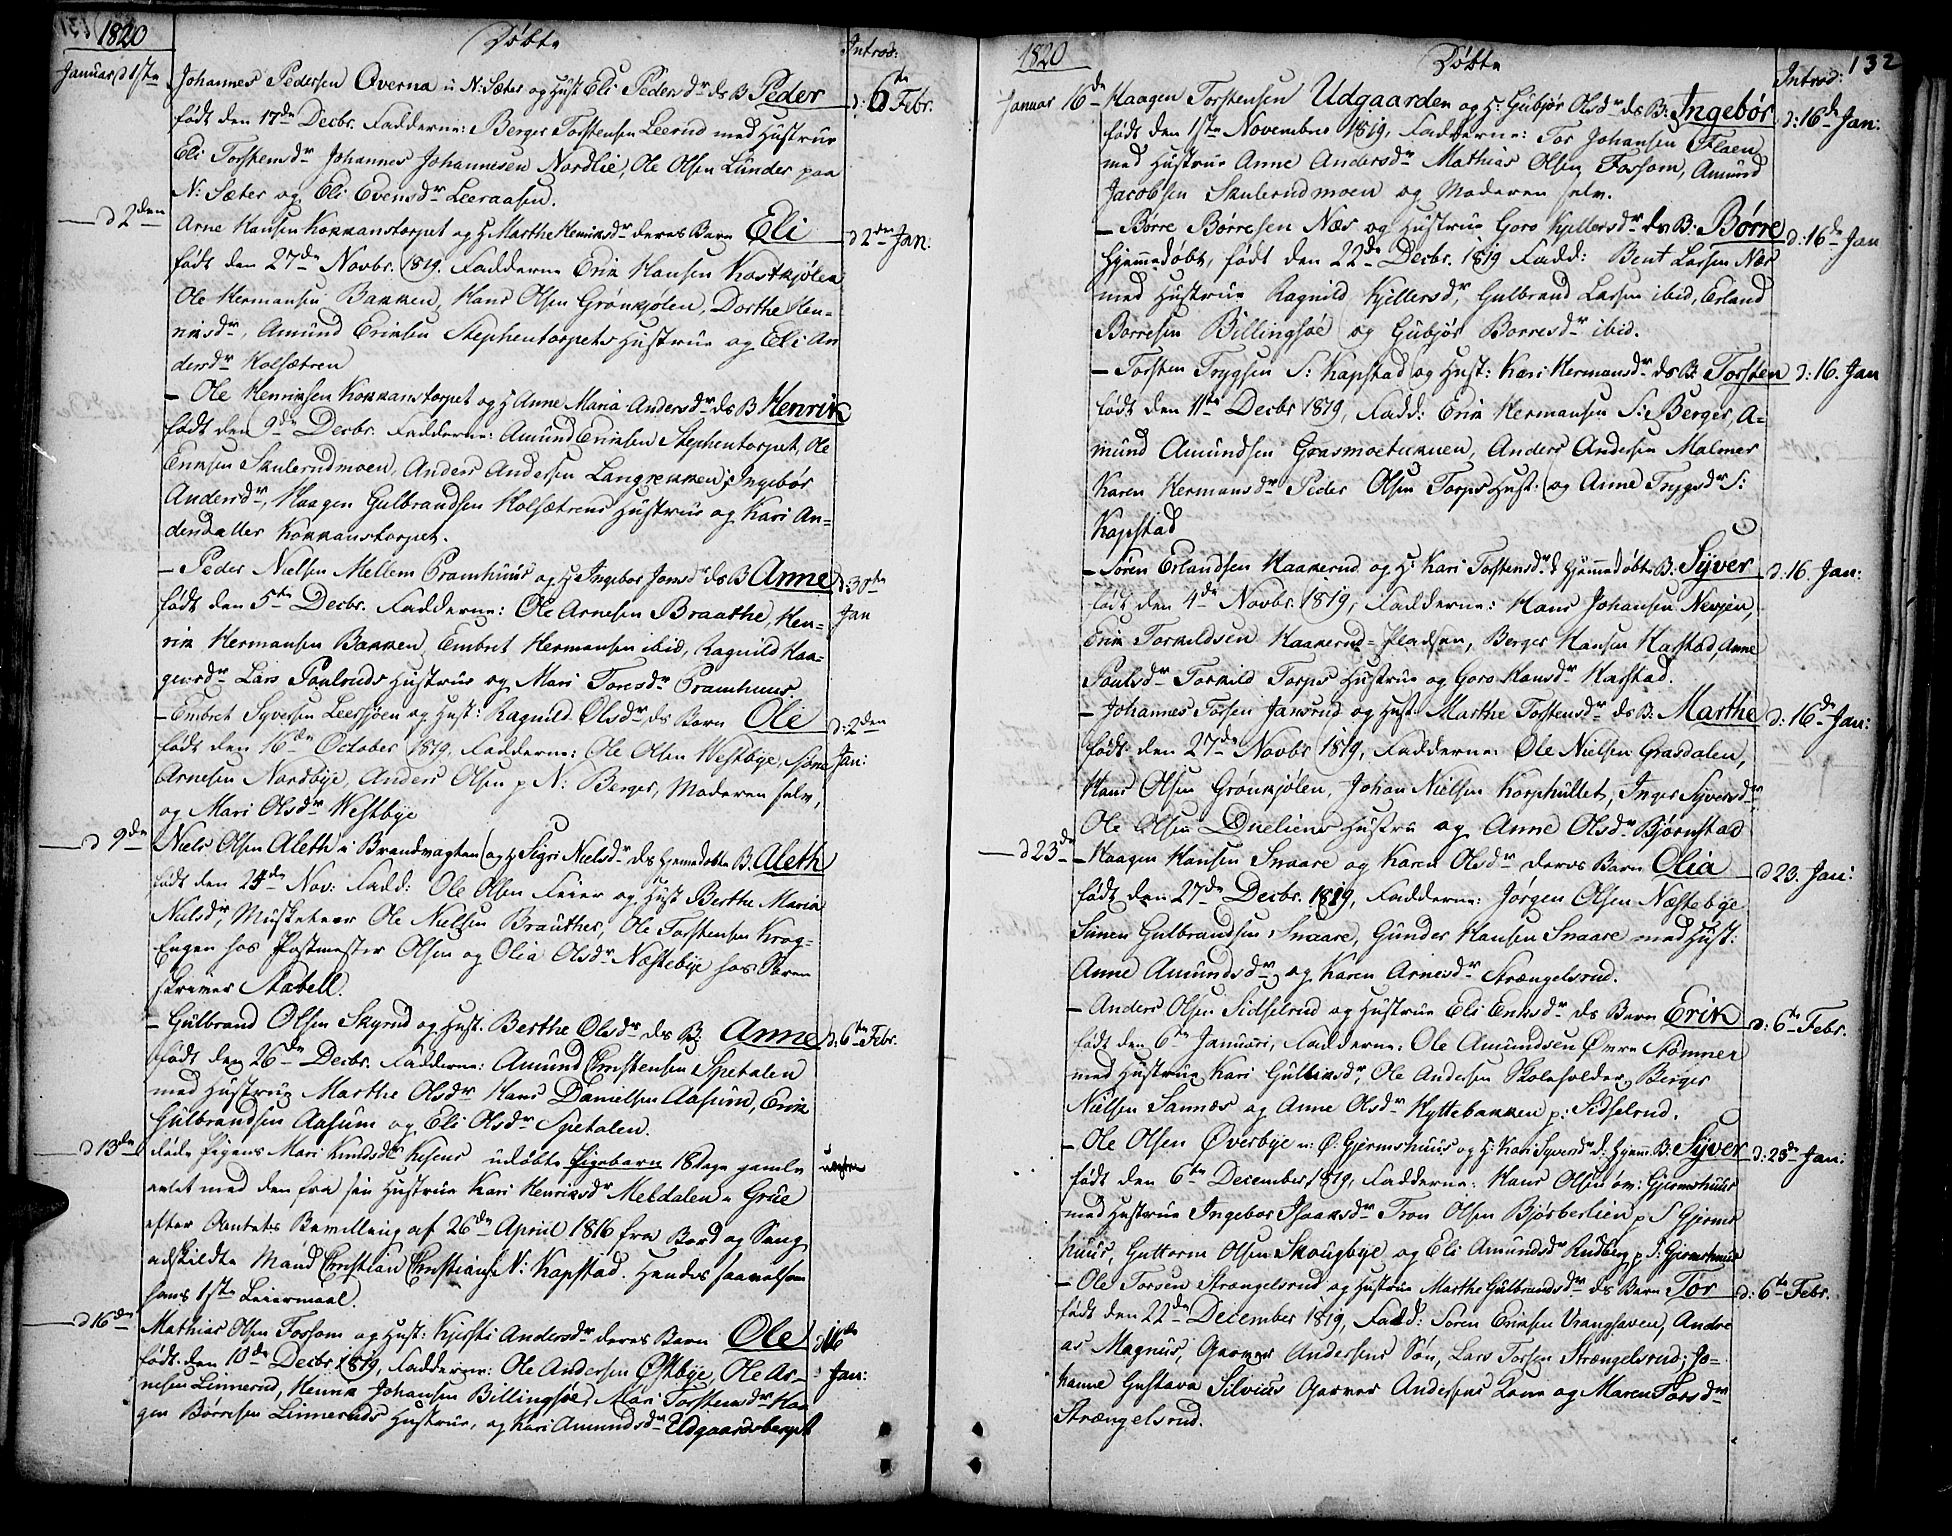 1820
Döbte
Introd:
Januar, d 1ste Johannes Pedersen Overna u N: Sæter og Hust Eli Pedersdr ds B Peder d: 6te Febr.
født den 17de Decbr. Fadderne: Berger Torstensen Leerud med Hustrue
Eli Torstensdr Johannes Johannesen Nordlie, Ole Olsen Lunder paa
N: Sæter og Eli Evensdr Leeraasen.
d 2den Arne Hansen Kokkanstorpet og H Marthe Henriksdr deres Barn Eli d 2den Jan:
født den 27de Novbr. 1819. Fadderne Erik Hansen Kastkjølen
Ole Hermansen Bakken, Hans Olsen Grønkjølen, Dorthe Hen-
riksdr, Amund Eriksen Stephentorpets Hustrue og Eli An
dersdr Holsætren
- Ole Henriksen Kokkanstorpet og H Anne Maria Andersdr ds B Henrik
født den 9de Decbr. Fadderne: Amund Eriksen Stephentorpet, Ole
Eriksen Skulerudmoen, Anders Andersen Langrekken, Ingebør
Andersdr, Haagen Gulbrandsen Holsætrens Hustrue og Kari An-
dersdatter Kokkanstorpet.
- Peder Nielsen Mellem Pramhuus og H Ingebor Jonsdr ds B Anne d: 30te
født den 5te Decbr. Fadderne: Ole Arnesen Braathe, Hen- Jan
rik Hermansen Bakken, Embret Hermansen ibid, Ragnild Haa-
gensdr Lars Poulruds Hustrue og Mari Toresdr Pramhuus.
- Embret Syversen Leersjøen og Hust: Ragnild Olsdr ds Barn Ole d: 2den
født den 16de October 1819. Fadderne: Ole Olsen Westbye, Jøns Jan:
Arnesen Nordbye, Anders Olsen p N: Berger, Moderen selv,
og Mari Olsdr Westbye
d 9de Niels Olsen Aleth u Brandvagten og H Sigri Nielsdr ds Hjemmedøbte B. Aleth
født den 24de Nov: Fadd: Ole Olsen Feier og Hust Berthe Maria
Nielsdr, Musketeer Ole Nielsen Brauther, Ole Torstensen Krog-
Engen hos Postmester Olsen og Olia Olsdr Næstebye hos Soren
skriver Stabell.
- Gulbrand Olsen Skyrud og Hust. Berthe Olsdr ds B: Anne d: 6te Febr.
født den 26de Decbr. Fadderne: Amund Christensen Spetalen
med Hustrue Marthe Olsdr Hans Danielsen Aasum, Erik
Gulbrandsen Aasum og Eli Olsdr Spetalen.
d 13de døde Pigens Mari Knudsdr Kesens udøbte Pigebarn 18 dage gamle
avlet med den fra sin Hustrue Kari Henriksdr Meldalen u Grue
efter Amtets Bevilling af 26de April 1816 fra Bord og Seng
adskildte Mand Christian Christians N: Kapstad. Hendes saavelsom
hans 1ste Leiermaal.
d 16de Mathias Olsen Fossom og Hust: Kjersti Andersdr deres Barn Ole d 16de
født den 10de Decbr 1819, Fadderne: Ole Andersen Østbye, Ole Ar- Jan:
nesen Linnerud, Henrik Johansen Billingsøe, Mari Torstensdr Haa
gen Børresen Linneruds Hustrue, og Kari Amundsdr Udgaardsberget
1820
Döbte
Introd:
132
Januar 16de Haagen Torstensen Udgaarden og H: Gubjør Olsdr ds B: Ingebør d: 16de Jan:
født den 1ste November 1819, Fadderne: Tor Johansen Flaen
med Hustrue Anne Andersdr Mathias Olsen Fossom, Amund
Jacobsen Skulerudmoen og Moderen selv.
- Børre Børresen Næs og Hustrue Goro Kjillersdr ds B: Børre d: 16de Jan
Hjemmedøbt, født den 22de Decbr. 1819 Fadd: Bent Larsen Næs
med Hustrue Ragnild Kjillersdr, Gulbrand Larsen ibid, Erland
Børresen Billingsøe og Gubjør Børresdr ibid.
- Torsten Trygsen S: Kapstad og Hust: Kari Hermansdr ds B: Torsten d: 16. Jan
født den 11te Decbr 1819, Fadd: Erik Hermansen S: Berger, A-
mund Amundsen Grasmoetuknen, Anders Andersen Malmer
Karen Hermansdr Peder Olsen Torps Hust: og Anne Trygsdr S:
Kapstad
- Søren Erlandsen Haakerud og H: Kari Torstensdr d Hjemmedøbte B: Syver d: 16. Jan:
født den 4de Novbr. 1819, Fadderne: Hans Johansen Nevjen,
Erik Torkildsen Haakerud-Pladsen, Berger Hansen Harstad, Anne
Poulsdr Torkild Torps Hustrue og Goro Hansdr Harstad.
- Johannes Torsen Jansrud og Hust: Marthe Torstensdr ds B. Marthe d: 16de Jan:
født den 27de Novbr 1819, Fadderne: Ole Nielsen Grasdalen,
Hans Olsen Grønkjølen, Johan Nielsen Korphullet, Inger Syversdr
Ole Olsen Dueliens Hustru og Anne Olsdr Bjørnstad
d 23de - Haagen Hansen Snaare og Karen Olsdr deres Barn Olia d 23. Jan:
født den 27de Decbr. 1819, Fadderne: Jørgen Olsen Næstebye
Simen Gulbrandsen Snaare, Gunder Hansen Snaare med Hust:
Anne Amundsdr og Karen Arnesdr Strængelsrud.
- Anders Olsen Sidselrud og Hustrue Eli Eriksdr ds Barn Erik d: 6te Febr.
født den 6te Januari, Fadderne: Ole Amundsen Øvre Stømner
med Hustrue Kari Gulliksdr, Ole Andersen Skoleholder, Berger
Nielsen Sannæs og Anne Olsdr Hyttebakken p: Sidselrud.
- Ole Olsen Øverbye u: Ø: Gjermshuus og H: Kari Syversdr d: Hjem B: Syver d: 23de Jan:
født den 6te December 1819, Fadderne: Hans Olsen øv: Gjermshuus
med Hustrue Ingebor Isaaksdr Tron Olsen Bjørberlien p S Gjerms
huus, Guttorm Olsen Skougbye og Eli Amundsdr Rudberg p S: Gjermshuus
- Ole Torsen Strængelsrud og Hustrue Marthe Gulbrandsdr ds Barn Tor d: 6te Febr.
født den 22de December 1819, Fadd: Søren Eriksen Vranghaven, Andre
as Magnus, Garver Andersens Søn, Lars Torsen Strængelsrud; Jo-
hanne Gustava Silvius Garver Andersens Kone og Maren Torsdr
Strængelsrud.